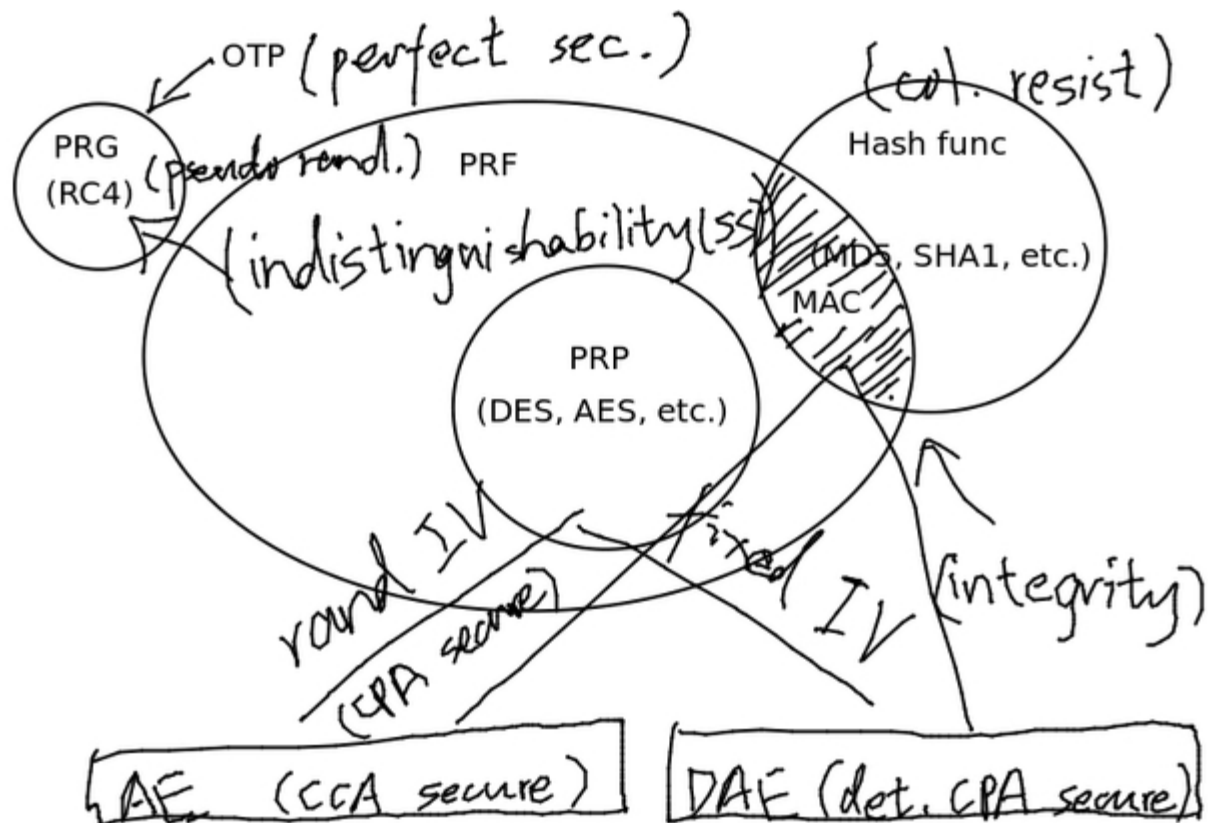 OTP (perfect sec.)
(col. resist)
PRG
(RC4)
(pseudo rand.)
PRF
Hash func
(indistinguishability(ss)
(MD5, SHA1, etc.)
MAC
PRP
(DES, AES, etc.)
rand IV
fixed IV
(CPA secure)
(integrity)
AE (CCA secure)
DAE (det. CPA secure)